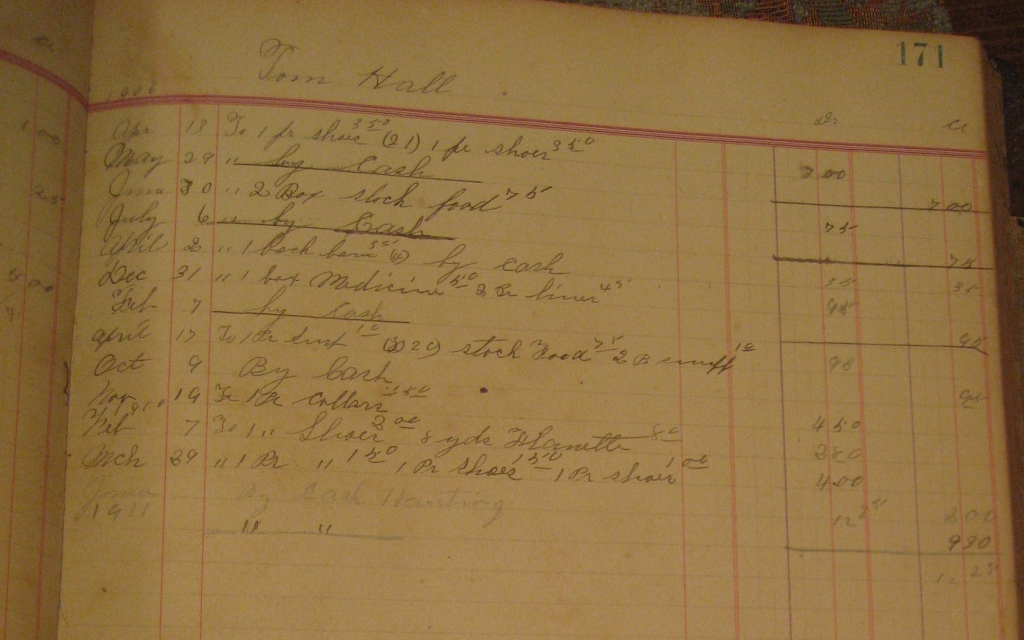 171
Tom Hall
1906
Dr
Apr 13 To 1 pr shoes 3 50 (21) 1 pr shoes 3 50
7 00
May 29 " by Cash
7 00
June 30 " 2 Box stock food 75
75
July 6 " by Cash
75
April 2 " 1 back band 35 by Cash
35 35
Dec 31 " 1 box Medicine 50 2 Pr lines 45
95
Feb 7 by Cash
95
April 17 To 1 Pr 10 stock Food 75 2 B snuff 10
95
Oct 9 By Cash
95
Nov 19 To 1 Pr Collars
4 50
Feb 1910 7 To 1 " Shoes 2 00 8 yds Flanette 80
2 80
Mch 29 " 1 Pr " 1 50 1 Pr Shoes 1 50 1 Pr shoes 1 00
4 00
June By Cash Hauting
2 00
1911 " "
9 30